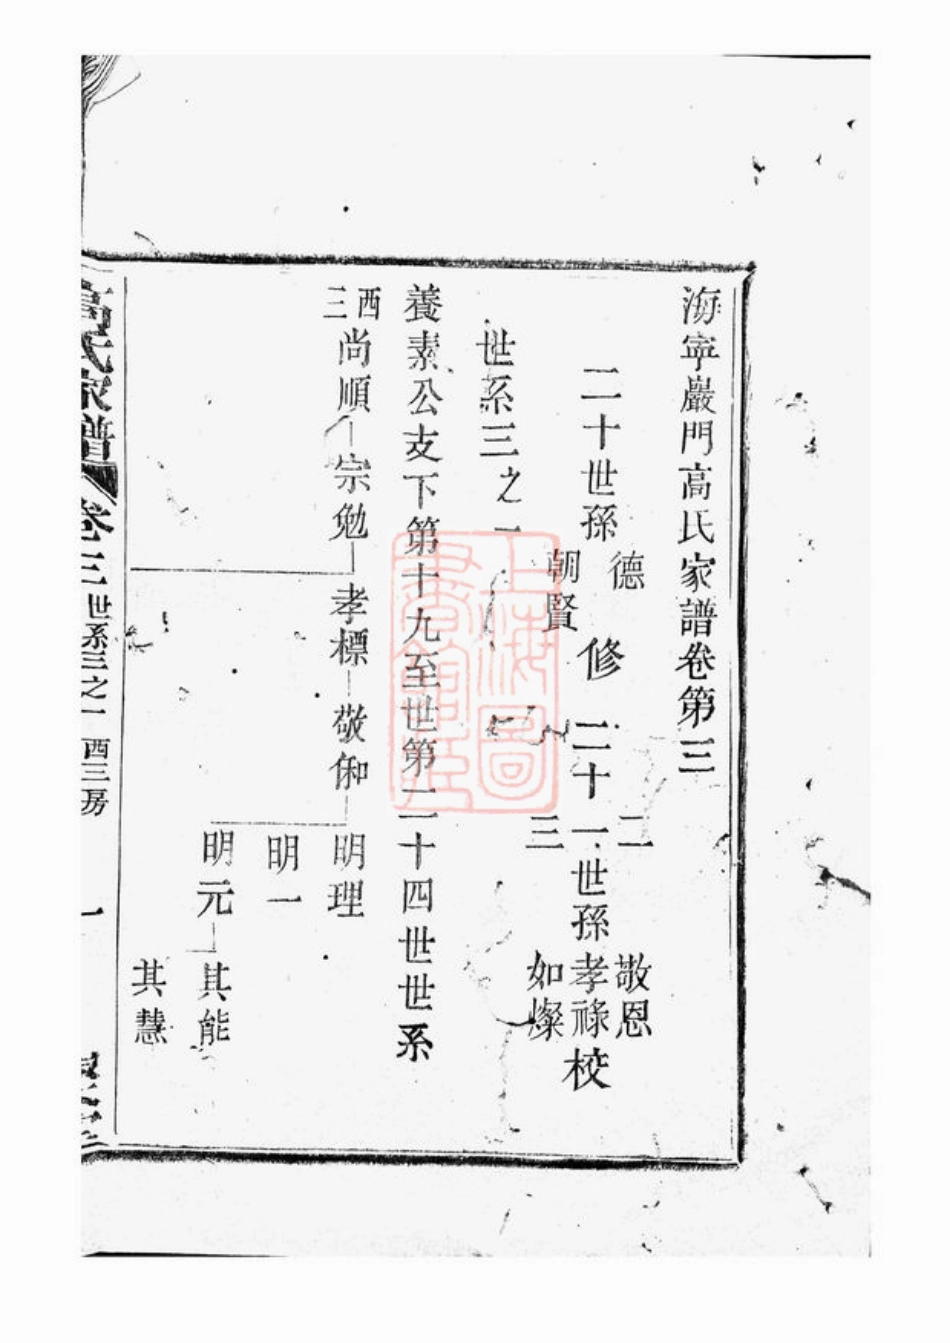 海寧巖門高氏家譜卷第三
二十世孫德朝賢修 二十二世孫敬恩
二十一世孫孝祿校
三 如燦
世系三之一
養素公支下第十九至世第二十四世世系
西三 尚順 宗勉 孝標 敬俰 明理
明一
明元 其能
其慧
高氏家譜 卷三 世系三之一 西三房 一
上海圖書館藏